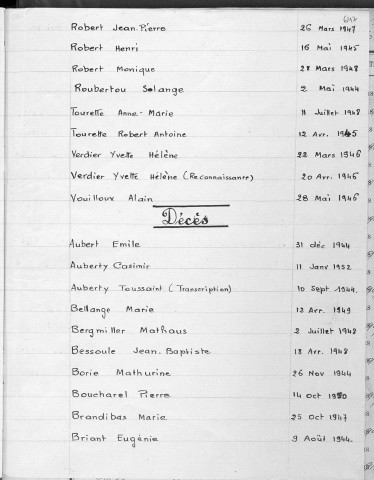 Robert Jean-Pierre 26 Mars 1947
Robert Henri 16 Mai 1945
Robert Monique 28 Mars 1948
Roubertou Solange 2 Mai 1944
Tourette Anne-Marie 11 Juillet 1948
Tourette Robert Antoine 12 Avr. 1945
Verdier Yvette Hélène 22 Mars 1946
Verdier Yvette Hélène (Reconnaissance) 20 Avr. 1946
Vouilloux Alain 28 Mai 1946
Décès
Aubert Emile 31 déc 1944
Auberty Casimir 11 Janv 1952
Auberty Toussaint (Transcription) 10 Sept 1944.
Bellange Marie 12 Avr. 1949
Bergmiller Mathaus 2 Juillet 1948
Bessoule Jean-Baptiste 18 Avr. 1948
Borie Mathurine 26 Nov 1944
Boucharel Pierre 14 Oct 1950
Brandibas Marie 25 Oct 1947
Briant Eugénie 9 Août 1944.